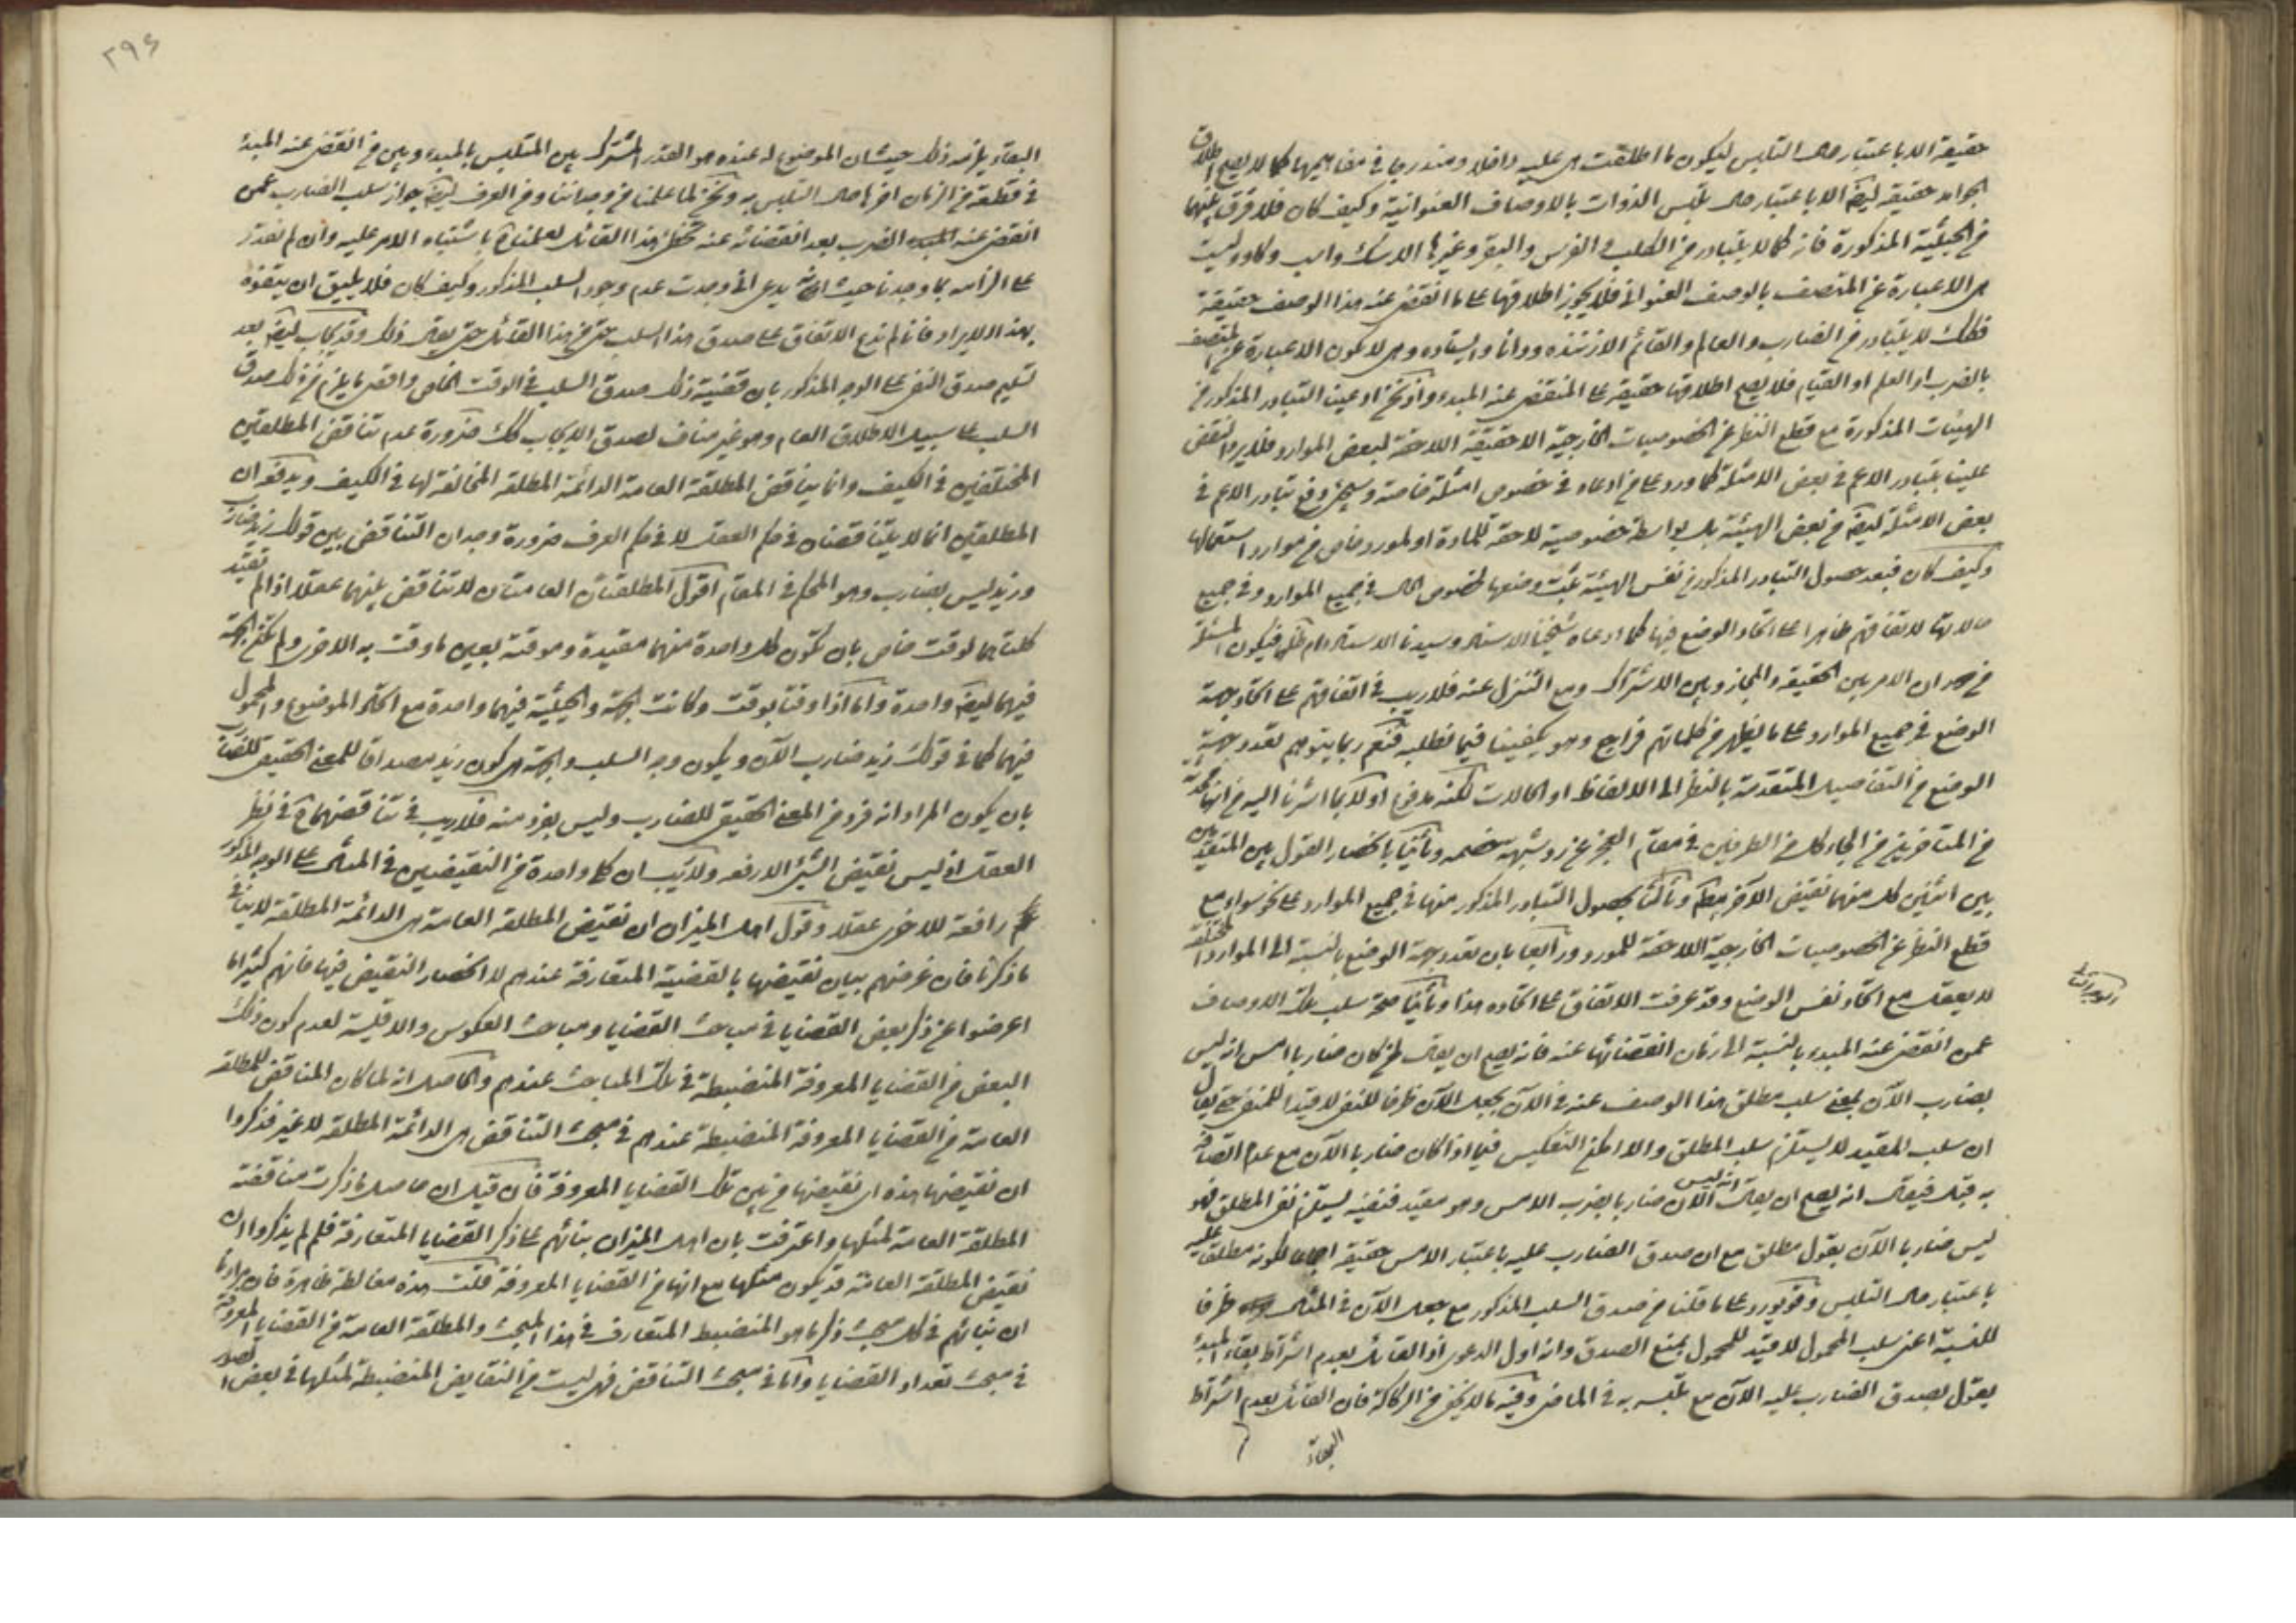 حقيقة الا باعتبار حال التلبس ليكون ما اطلقت هى عليه داخلا ومندرجا فى مفاهيمها كما لا يصح اطلاق
الجوامد حقيقة ايضا الا باعتبار حال تلبس الذوات بالاوصاف العنوانية وكيف كان فلا فرق بينهما
من الحيثية المذكورة فانه كما لا يتبادر من الكلب والفرس والبقر وغيرها الا سك واسب وكاو وليست
هى الا عبارة عن المتصف بالوصف العنوانى فلا يجوز اطلاقها على ما انقضى عنه هذا الوصف حقيقة
فكك لا يتبادر من الضارب والعالم والقائم الا زننده ودانا وايستاده وهى لا يكون الا عبارة عن المتصف
بالضرب او العلم او القيام فلا يصح اطلاقها حقيقة على المنقضى عنه المبدء واذ نحن ادعينا التبادر المذكور من
الهيئات المذكورة مع قطع النظر عن الخصوصيات الخارجية اللاحقة لبعض الموارد فلا يرد النقض
علينا بتبادر الاعم فى بعض الامثلة كما ورد على من ادعاه فى خصوص امثلة خاصة وسيجئ وقع تبادر الاعم فى
بعض الامثلة ايضا من بعض الهيئة بل بواسطة خصوصية لاحقة للمادة او لمورد خاص من موارد استعمالها
وكيف كان فبعد حصول التبادر المذكور من نفس الهيئة يثبت وضعها لخصوص الحال فى جميع الموارد وفى جميع
حالاتها لاتفاقهم ظاهرا على اتحاد الوضع فيها كما ادعاه شيخنا الاستاد وسيدنا الاستاد دام ظله فيكون المسئلة
من دوران الامر بين الحقيقة والمجاز وبين الاشتراك ومع التنزل عنه فلا ريب فى اتفاقهم على اتحاد جهة
الوضع فى جميع الموارد على ما يظهر من كلماتهم فراجع وهو يكفينا فيما نطلبه فنعم ربما يتوهم تعدد جهة
الوضع من التفاصيل المتقدمة بالنظر الى الالفاظ او الحالات لكنه مدفوع اولا بما اشرنا اليه من انها
من المتاخرين من الجاء كل من الطرفين فى مقام العجز عن رد شبهة خصمه وثانيا بانحصار القول بين المتقدمين
بين اثنين كل منهما نقيض الآخر وثالثا بحصول التبادر المذكور منها فى جميع الموارد على نحو سواء مع
قطع النظر عن الخصوصيات الخارجية اللاحقة للمورد ورابعا بان تعدد جهة الوضع بالنسبة الى الموارد المختلفة
لا يعقل مع اتحاد نفس الوضع وقد عرفت الاتفاق على اتحاده هذا وثانيا صحة سلب تلك الاوصاف
عمن انقضى عنه المبدء بالنسبة الى زمان انقضائها عنه فانه يصح ان يقال لمن كان ضاربا امس انه ليس
بضارب الآن بمعنى سلب مطلق هذا الوصف عنه فى الآن بجعل الآن ظرفا للنفى لا قيدا للمنفى حتى يقال
ان سلب المقيد لا يستلزم سلب المطلق والا امكن التعكيس فيما اذا كان ضاربا الآن مع عدم اتصافه
به قبل فيقال انه يصح ان يقال انه ليس الآن ضاربا بضرب الامس وهو مقيد فنفيه يستلزم نفى المطلق فهو
ليس ضاربا الآن بقول مطلق مع ان صدق الضارب عليه باعتبار الامس حقيقة اجماعا لكونه مطلقا عليه
باعتبار حال التلبس وقد يورد على ما قلنا من صدق السلب المذكور مع جعل الآن فى المثال ظرفا
للنسبة اعنى سلب المحمول لا قيد للمحمول بمنع الصدق وانه اول الدعوى اذ القائل بعدم اشتراط بقاء المبدء
يقول بصدق الضارب عليه الآن مع تلبسه به فى الماضى وفيه ما لا يخفى من الركاكة فان القائل بعدم اشتراط
البقاء
٢٩٤
البقاء يلزمه ذلك حيث ان الموضوع له عنده هو القدر المشترك بين المتلبس بالمبدء وبين من انقضى عنه المبدء
فى قطعة من الزمان آخرها حال التلبس به ونحن لما علمنا من وجداننا ومن العرف ايضا جواز سلب الضارب عمن
انقضى عنه الضرب بعد انقضائه عنه هذا القائل باشتباه الامر عليه وان لم نقدر
على الزامه بما وجدنا حيث انه يدعى انى وجدت عدم وجود السلب المذكور وكيف كان فلا يليق ان يتفوه
بهذا الايراد فانا لم ندع الاتفاق على صدق هذا السلب حتى من هذا القائل حتى يقال ذلك وقد يجاب ايضا بعد
تسليم صدق النفى على الوجه المذكور بان قضية ذلك صدق السلب فى الوقت الخاص واقصى ما يلزم من ذلك صدق
السلب على سبيل الاطلاق العام وهو غير مناف لصدق الايجاب كك ضرورة عدم تناقض المطلقتين
المختلفتين فى الكيف وانما يناقض المطلقة العامة الدائمة المطلقة المخالفة لها فى الكيف ويدفعه ان
المطلقتين انما لا يتناقضان فى حكم العقل لا فى حكم العرف ضرورة وجدان التناقض بين قولك زيد ضارب
وزيد ليس بضارب وهو المحكم فى المقام اقول المطلقتان العامتان لا تناقض بينهما عقلا اذا لم تقيد
كلتاهما لوقت خاص بان تكون كل واحدة منهما مقيدة وموقتة بعين ما وقت به الاخرى ولم تكن الجهة
فيهما ايضا واحدة واما اذا وقتا بوقت وكانت الجهة والحيثية فيهما واحدة مع اتحاد الموضوع والمحمول
فيهما كما فى قولك زيد ضارب الآن ويكون وجه السلب والجهة هى كون زيد مصداقا للمعنى الحقيقى للضارب
بان يكون المراد انه فرد من المعنى الحقيقى للضارب وليس بفرد منه فلا ريب فى تناقضهما ح فى نظر
العقل اذ ليس نقيض الشئ الا رفعه ولا ريب ان كل واحدة من النقيضين فى المثال على الوجه المذكور
رافعة للاخرى عقلا وقول اهل الميزان ان نقيض المطلقة العامة هى الدائمة المطلقة لا ينافى
ما ذكرنا فان غرضهم بيان نقيضها بالقضية المتعارفة عندهم لا انحصار النقيض فيها فانهم كثيرا ما
اعرضوا عن ذكر بعض القضايا فى مباحث القضايا ومباحث العكوس والاقيسة لعدم كون ذلك
البعض من القضايا المعروفة المنضبطة فى تلك المباحث عندهم والحاصل انه لما كان المناقض للمطلقة
العامة من القضايا المعروفة المنضبطة عندهم فى مبحث التناقض هى الدائمة المطلقة لا غير فذكروا
ان نقيضها هذه اى نقيضها من بين تلك القضايا المعروفة فان قيل ان حاصل ما ذكرت مناقضة
المطلقة العامة لمثلها واعترفت بان اهل الميزان بنائهم على ذكر القضايا المتعارفة فلم لم يذكروا ان
نقيض المطلقة العامة قد يكون مثلها مع انها من القضايا المعروفة قلت هذه مغالطة ظاهرة فان مرادنا
ان بنائهم فى كل مبحث ذكر ما هو المنضبط المتعارف فى هذا المبحث والمطلقة العامة من القضايا المعروفة
فى مبحث تعداد القضايا واما فى مبحث التناقض فهى ليست من النقايض المنضبطة لمثلها فى بعض الصور